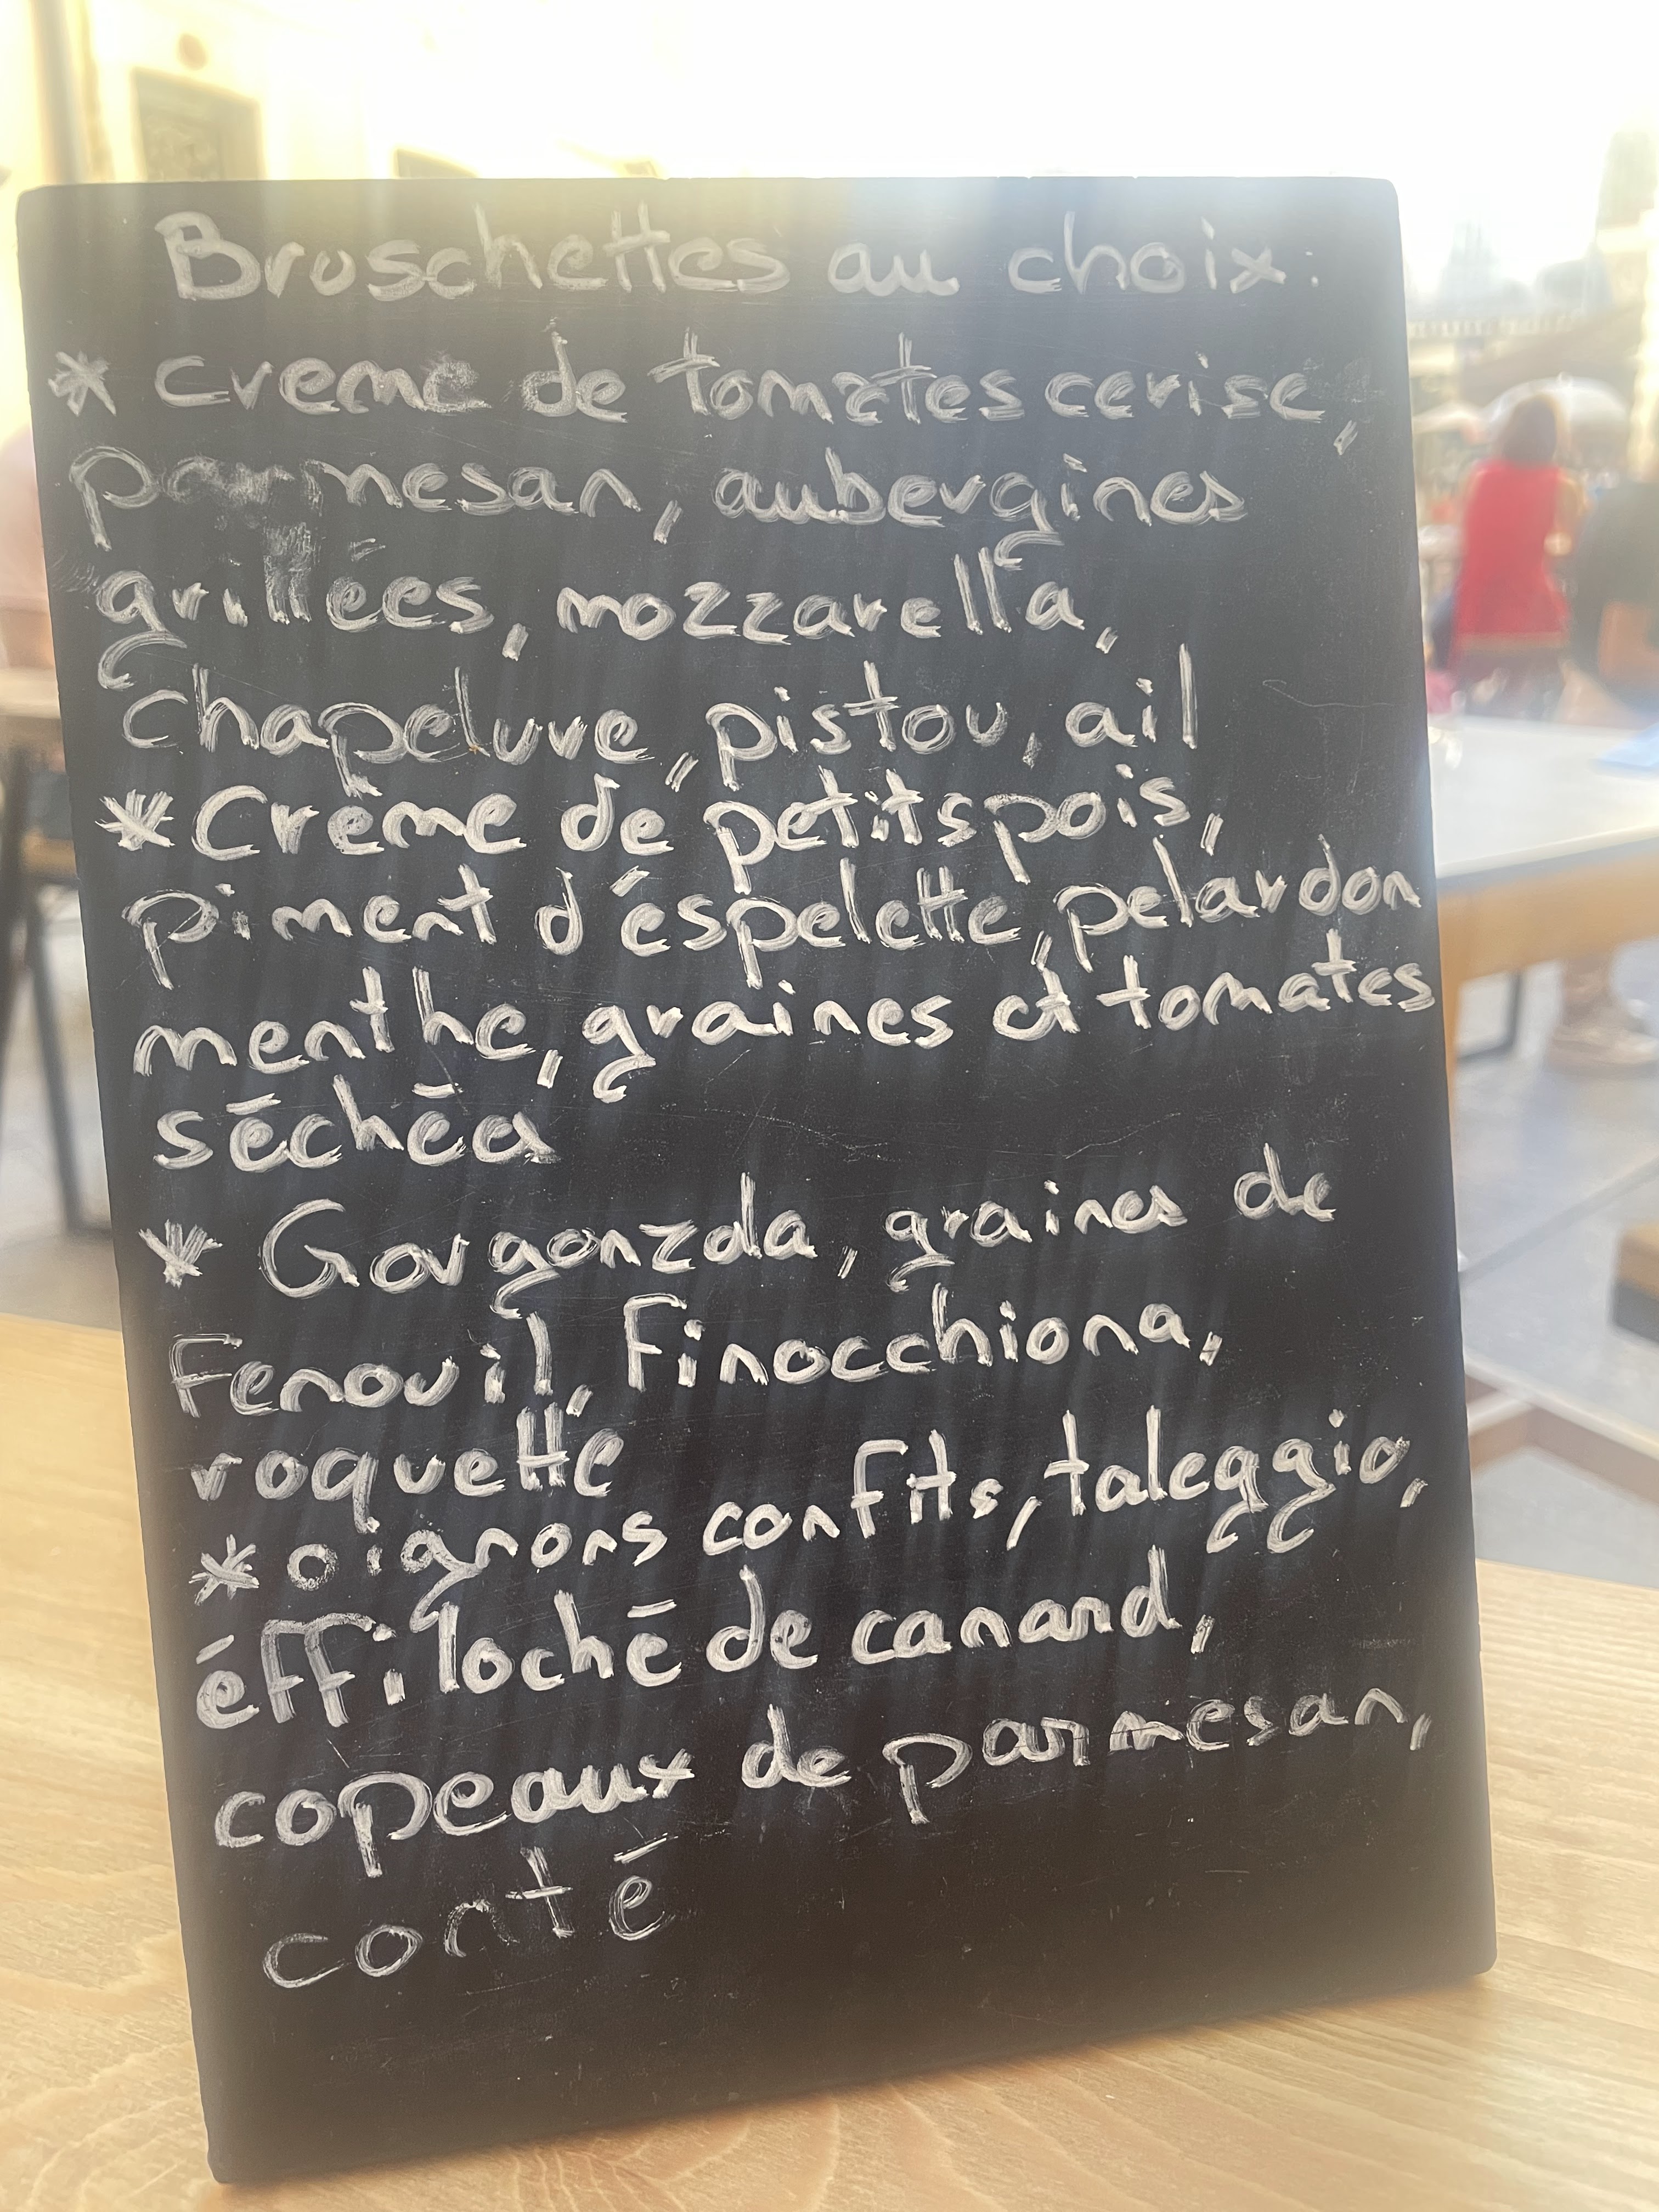 Bruschettes au choix:
* creme de tomates cerise,
parmesan, aubergines
grillées, mozzarella,
Chapelure, pistou, ail
* Crème de petits pois,
piment d'éspelette, pélardon
menthe, graines et tomates
séchés
* Gorgonzola, graines de
Fenouil, Finocchiona,
roquette
* oignons confits, taleggio,
éffiloché de canard,
copeaux de parmesan,
conté